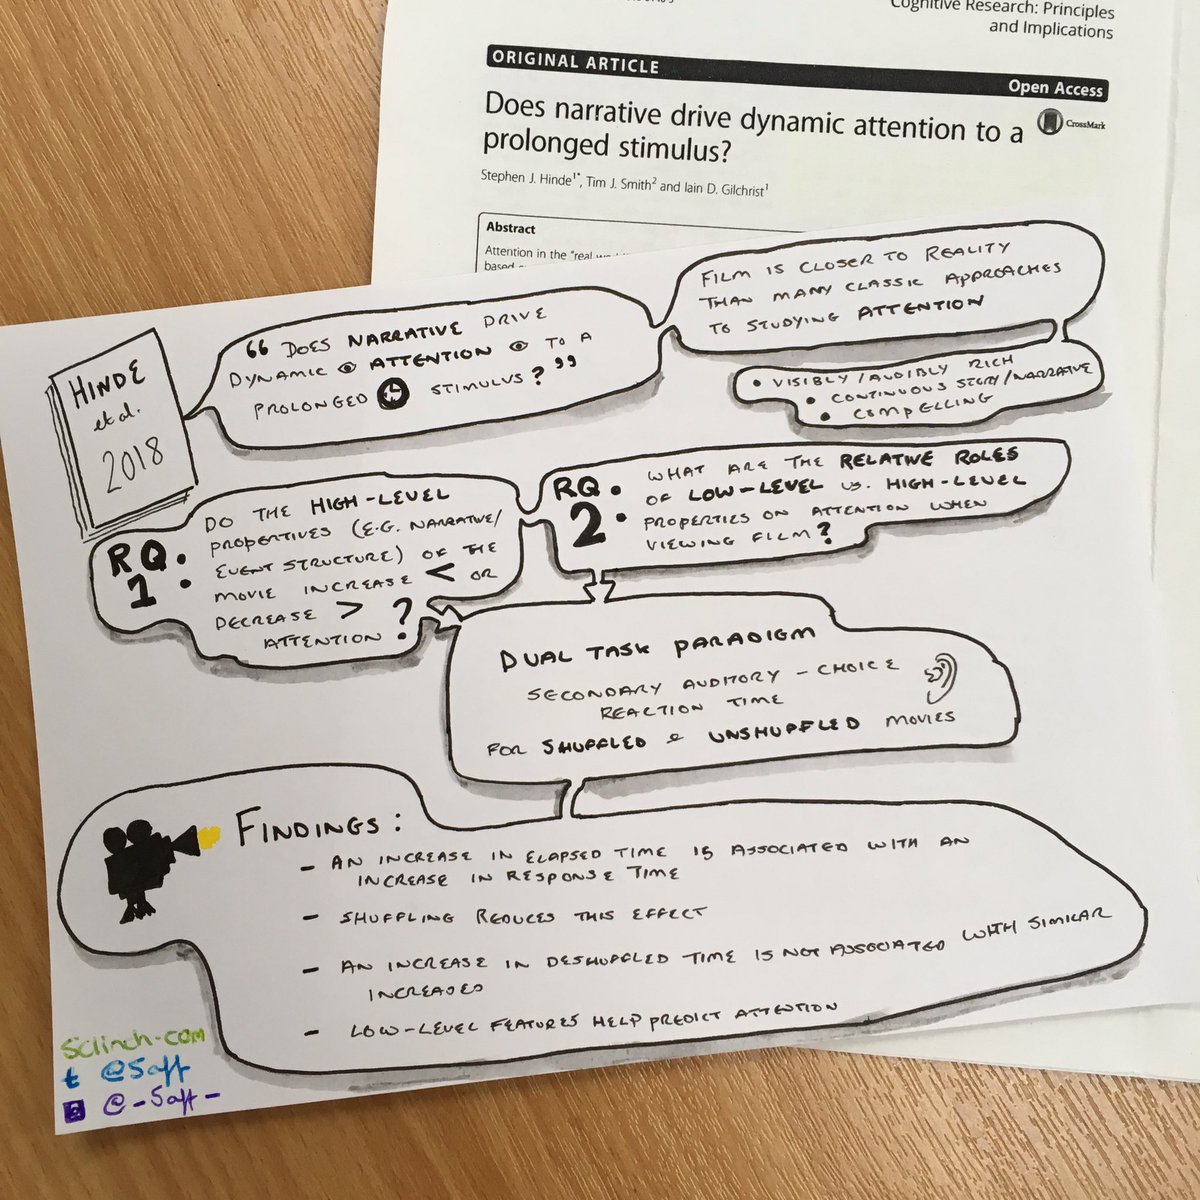 Cognitive Research: Principles
and Implications
ORIGINAL ARTICLE
Open Access
Does narrative drive dynamic attention to a
prolonged stimulus?
CrossMark
Stephen J. Hinde1*, Tim J. Smith2 and Iain D. Gilchrist1
Abstract
Attention in the "real
based
HINDE
et al.
2018
"DOES NARRATIVE DRIVE
DYNAMIC ATTENTION TO A
PROLONGED STIMULUS?"
FILM IS CLOSER TO REALITY
THAN MANY CLASSIC APPROACHES
TO STUDYING ATTENTION
• VISIBLY/AUDIBLY RICH
• CONTINUOUS STORY/NARRATIVE
• COMPELLING
RQ.
1.
DO THE HIGH-LEVEL
PROPERTIVES (E.G. NARRATIVE/
EVENT STRUCTURE) OF THE
MOVIE INCREASE < OR
DECREASE >
ATTENTION ?
RQ.
2.
WHAT ARE THE RELATIVE ROLES
OF LOW-LEVEL VS. HIGH-LEVEL
PROPERTIES ON ATTENTION WHEN
VIEWING FILM?
DUAL TASK PARADIGM
SECONDARY AUDITORY-CHOICE
REACTION TIME
FOR SHUFFLED & UNSHUFFLED MOVIES
FINDINGS:
- AN INCREASE IN ELAPSED TIME IS ASSOCIATED WITH AN
INCREASE IN RESPONSE TIME
- SHUFFLING REDUCES THIS EFFECT
- AN INCREASE IN DESHUFFLED TIME IS NOT ASSOCIATED WITH SIMILAR
INCREASES
- LOW-LEVEL FEATURES HELP PREDICT ATTENTION
Sclinch.com
t @Saft
@-Saft-